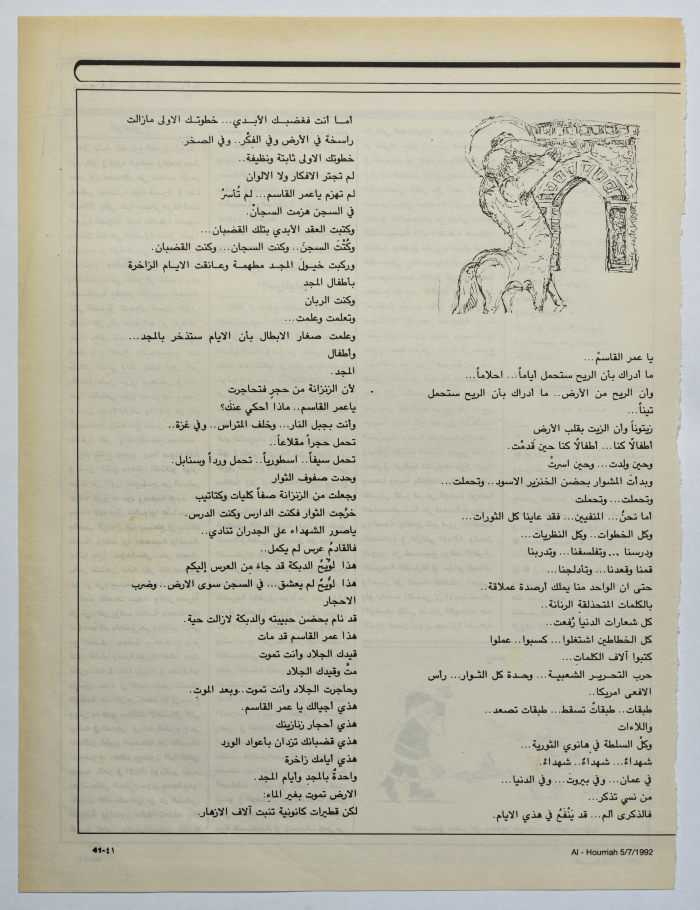 يا عمر القاسمْ...
ما أدراك بأن الريح ستحمل أياماً... احلاماً...
وأن الريح من الأرض.. ما أدراك بأن الريح ستحمل
تيناً...
زيتوناً وأن الزيت بقلب الأرض
أطفالًا كنا... أطفالًا كنا حين قَدمْت.
وحين ولدت... وحين اسرتْ
وبدأت المشوار بحضن الخنزير الاسود.. وتحملت...
وتحملت... وتحملت
أما نحنُ... المنفيين... فقد عاينا كل الثورات...
وكل الخطوات.. وكل النظريات...
ودرسنا ... وتفلسفنا... وتدربنا
قمنا وقعدنا... وتأدلجنا...
حتى ان الواحد منا يملك أرصدة عملاقة..
بالكلمات المتحذلقة الرنانة..
كل شعارات الدنيا رُفعت..
كل الخطاطين اشتغلوا... كسبوا.. عملوا
كتبوا آلاف الكلمات...
حرب التحرير الشعبية... وحدة كل الثوار... رأس
الافعى امريكا..
طبقات.. طبقاتٌ تسقط... طبقات تصعد..
واللاءات
وكلُّ السلطة في هانوي الثورية...
شهداءً... شهداءً.. شهداءً.
في عمان... وفي بيروتَ... وفي الدنيا...
من نسي تذكر...
فالذكرى ألم... قد يَنْفَعُ في هذي الايام.
أما أنت فغضبك الأبدي... خطوتك الاولى مازالت
راسخة في الأرض وفي الفِكْر.. وفي الصخر.
خطوتك الاولى ثابتة ونظيفة..
لم تجتر الافكار ولا الالوان
لم تهزم ياعمر القاسم... لم تُأسرُ
في السجن هزمت السجانْ.
وكتبت العقد الأبدي بتلك القضبان...
وكُنْتَ السجنَ.. وكنت السجان... وكنت القضبان.
وركبت خيول المجد مطهمة وعانقت الايام الزاخرة
بأطفال المجدِ
وكنت الربان
وتعلمت وعلمت...
وعلمت صغار الابطال بأن الايام ستذخر بالمجد...
وأطفال
المجد.
لأن الزنزانة من حجرٍ فتحاجرت
ياعمر القاسم.. ماذا أحكي عنك؟
وأنت بجبل النار... وخلف المتراس.. وفي غزة..
تحمل حجراً مقلاعاً..
تحمل سيفاً.. اسطورياً.. تحمل ورداً وسنابل.
وحدت صفوف الثوار
وجعلت من الزنزانة صفاً كليات وكتاتيب
خرَّجت الثوار فكنت الدارس وكنت الدرس.
ياصور الشهداء على الجدران تنادي..
فالقادمُ عرس لم يكمل..
هذا لوِّيحُ الدبكة قد جاءَ من العرس إليكم
هذا لوِّيحُ لم يعشق... في السجن سوى الارض.. وضرب
الاحجار
قد نام بحضن حبيبته والدبكة لازالت حية.
هذا عمر القاسم قد مات
قيدك الجلاد وأنت تموت
متُّ وقيدك الجلاد
وحاجرت الجلاد وأنت تموت..وبعد الموتِ.
هذي أجيالك يا عمر القاسم.
هذي أحجار زنازينك
هذي قضبانك تزدان بأعواد الورد
هذي أيامك زاخرة
واحدةٌ بالمجدِ وأيام المجد.
الارض تموت بغير الماءِ:
لكن قطيرات كانونية تنبت آلاف الازهار.
Al - Hourriah 5/7/1992
41-٤١